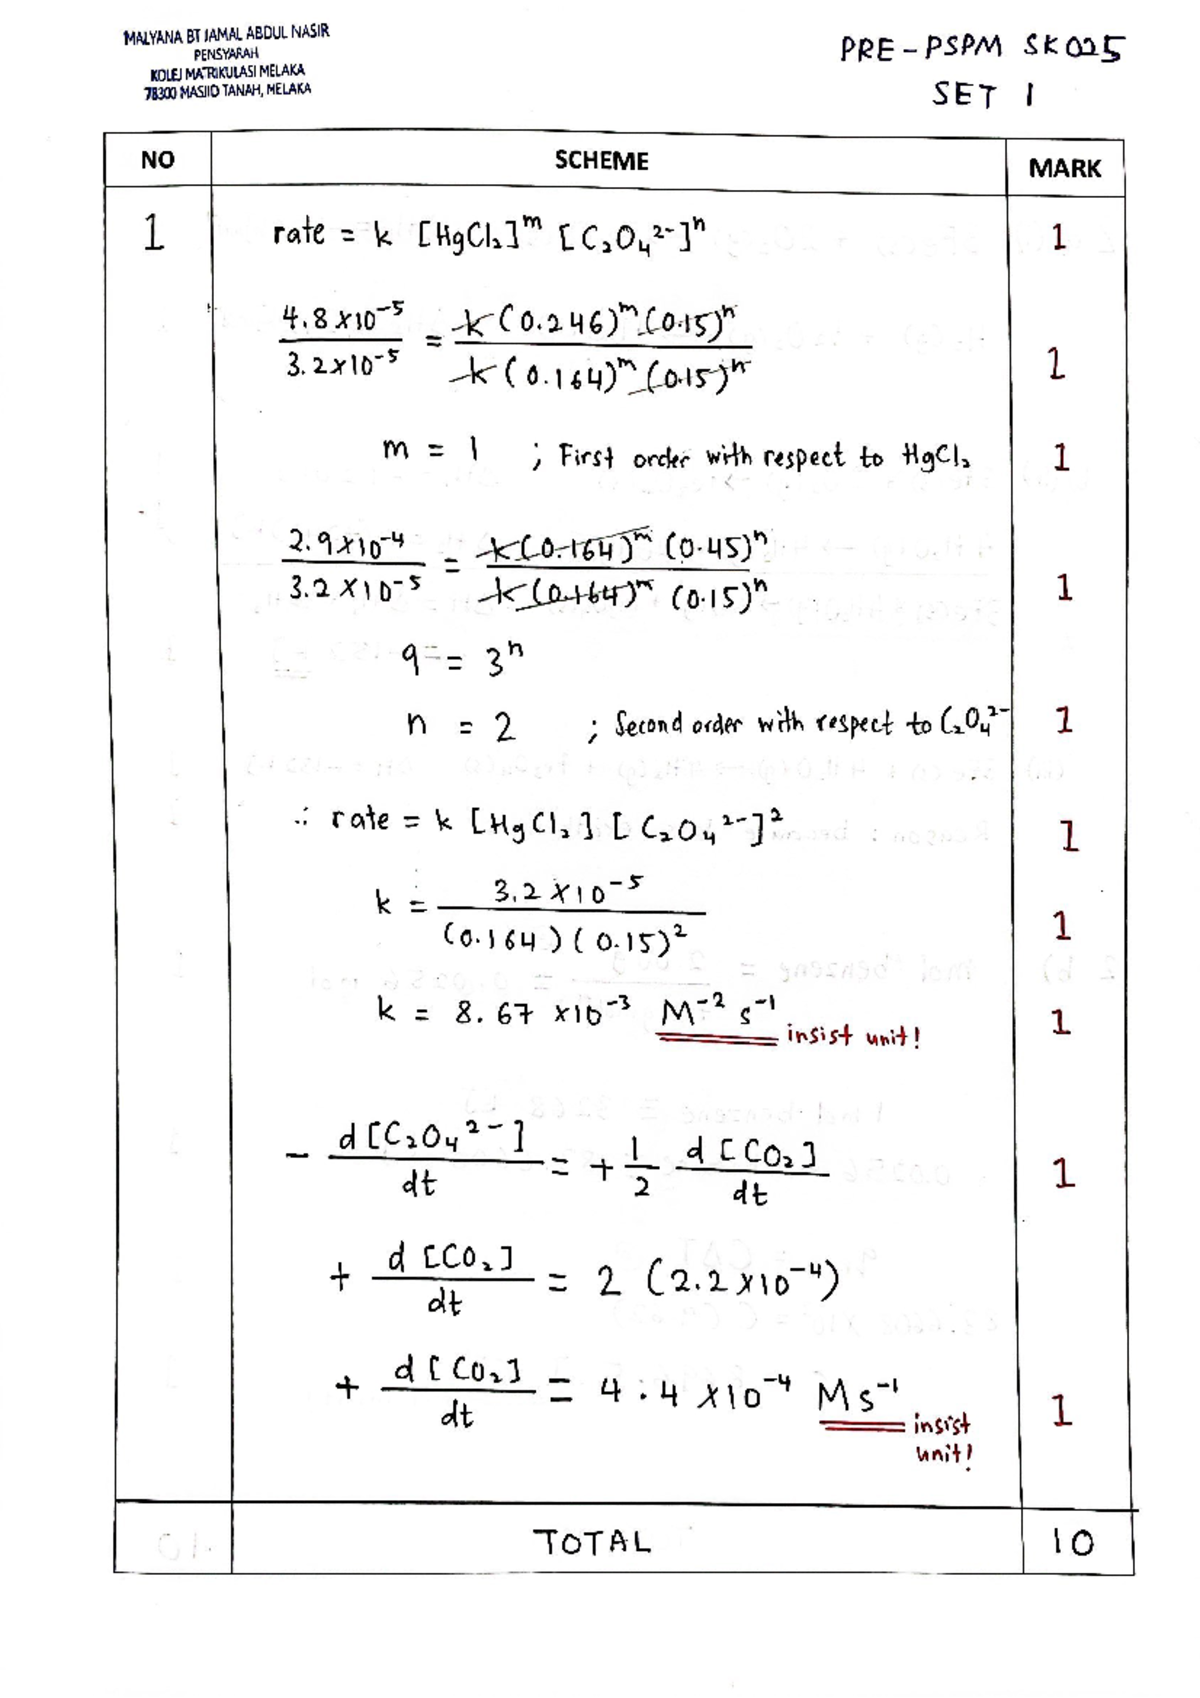 MALYANA BT JAMAL ABDUL NASIR
PENSYARAH
KOLEJ MATRIKULASI MELAKA
78300 MASJID TANAH, MELAKA
PRE-PSPM SK025
SET 1
NO SCHEME MARK
1 rate = k [HgCl₂]ᵐ [C₂O₄²⁻]ⁿ 1
4.8 x 10⁻⁵ / 3.2 x 10⁻⁵ = k (0.246)ᵐ (0.15)ⁿ / k (0.164)ᵐ (0.15)ⁿ 1
m = 1 ; First order with respect to HgCl₂ 1
2.9 x 10⁻⁴ / 3.2 x 10⁻⁵ = k (0.164)ᵐ (0.45)ⁿ / k (0.164)ᵐ (0.15)ⁿ 1
9 = 3ⁿ
n = 2 ; Second order with respect to C₂O₄²⁻ 1
∴ rate = k [HgCl₂] [C₂O₄²⁻]² 1
k = 3.2 x 10⁻⁵ / (0.164) (0.15)² 1
k = 8.67 x 10⁻³ M⁻² s⁻¹ insist unit! 1
- d[C₂O₄²⁻] / dt = + 1/2 d[CO₂] / dt 1
+ d[CO₂] / dt = 2 (2.2 x 10⁻⁴)
+ d[CO₂] / dt = 4.4 x 10⁻⁴ M s⁻¹ 1
insist
unit!
TOTAL 10